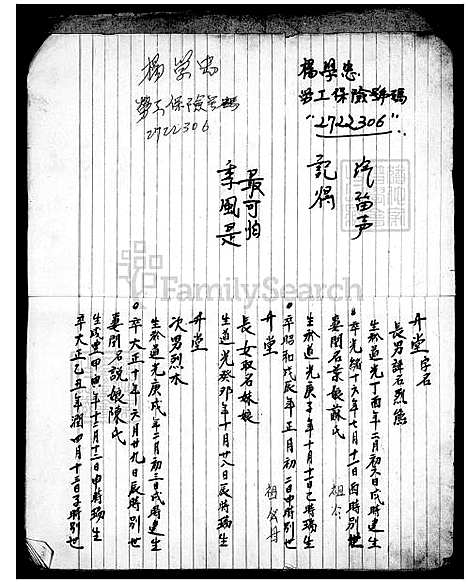 楊學忠
勞工保險號碼
"2722306"
汽笛声
記偶
楊學忠
勞工保險號碼
2722306
最可怕
季風是
升堂字名
長男諱名烈態
生於道光丁酉年二月初六日戌時建生
卒光緒十六年七月十一日酉時別世
妻閨名葉娘蘇氏 祖公
生於道光庚子年十月十一日巳時瑞生
卒昭和戊辰年正月初二日申時別世
升堂 祖公母
長女取名妹娘
生道光癸卯年十月廿八日辰時瑞生
升堂
次男烈水
生於道光庚戌年二月初三日戌時建生
卒大正十年六月廿九日辰時別世
妻閨名説娘陳氏
生咸豐甲寅年十二月十二日申時瑞生
卒大正乙丑年潤四月十二日子時別世
FamilySearch